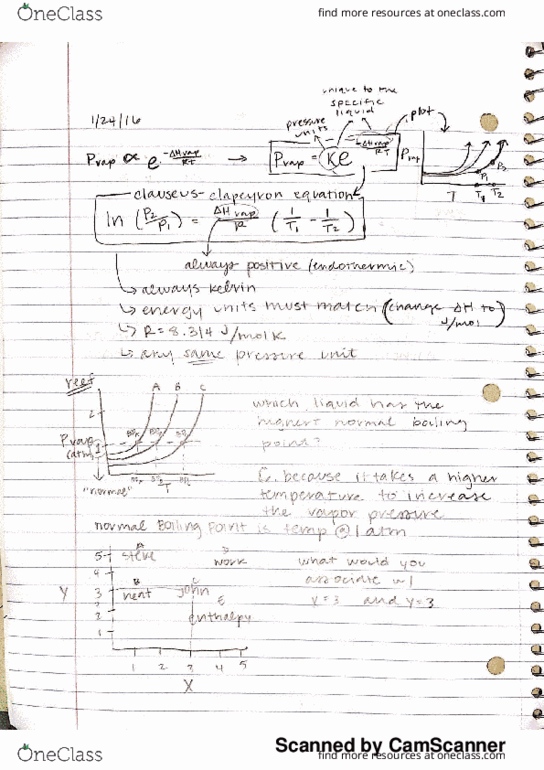 OneClass find more resources at oneclass.com
unique to the
specific
liquid
pressure
units
plot
1/24/16
Pvap ∝ e^(-ΔHvap/RT) → Pvap = Ke^(-ΔHvap/RT)
Pvap
P2
P1
T T1 T2
clauseus-clapeyron equation
ln (P2/P1) = ΔHvap/R (1/T1 - 1/T2)
always positive (endothermic)
↳ always kelvin
↳ energy units must match (change ΔH to
J/mol)
↳ R = 8.314 J/mol K
↳ any same pressure unit
reef
A B C
2
Pvap
(atm)
T
"normal"
which liquid has the
highest normal boiling
point?
C. because it takes a higher
temperature to increase
the vapor pressure
normal Boiling Point is temp @ 1 atm
5 A steve D work
4
3 B heat C john
E
2 enthalpy
1
Y
1 2 3 4 5
X
what would you
associate w/
y=3 and y=3
Scanned by CamScanner
OneClass find more resources at oneclass.com